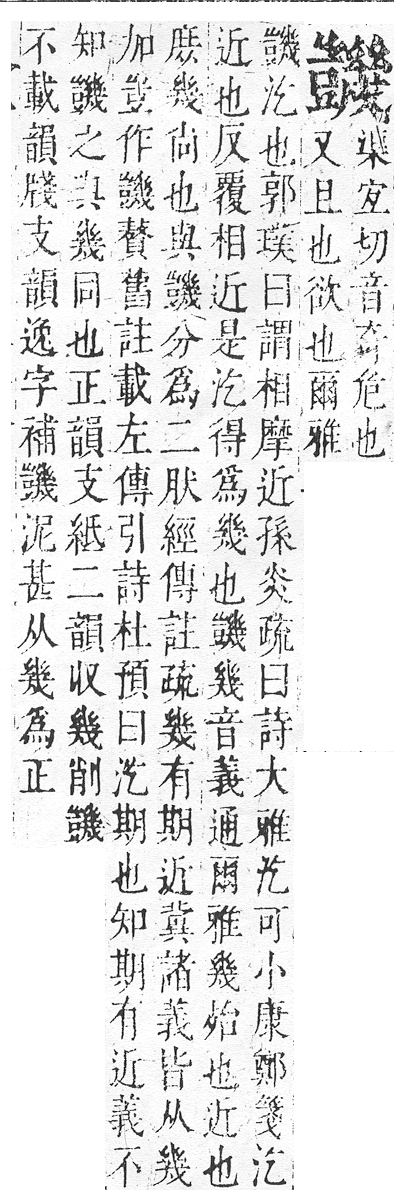 𧰙
渠宜切音奇危也
又且也欲也爾雅
𧰙汔也郭璞曰謂相摩近孫炎疏曰詩大雅汔可小康鄭箋汔
近也反覆相近是汔得爲幾也𧰙幾音義通爾雅幾殆也近也
庶幾尚也與𧰙分爲二肰經傳註疏幾有期近冀諸義皆从幾
加豈作𧰙贅舊註載左傳引詩杜預曰汔期也知期有近義不
知𧰙之與幾同也正韻支紙二韻收幾削𧰙
不載韻牋支韻逸字補𧰙泥甚从幾爲正